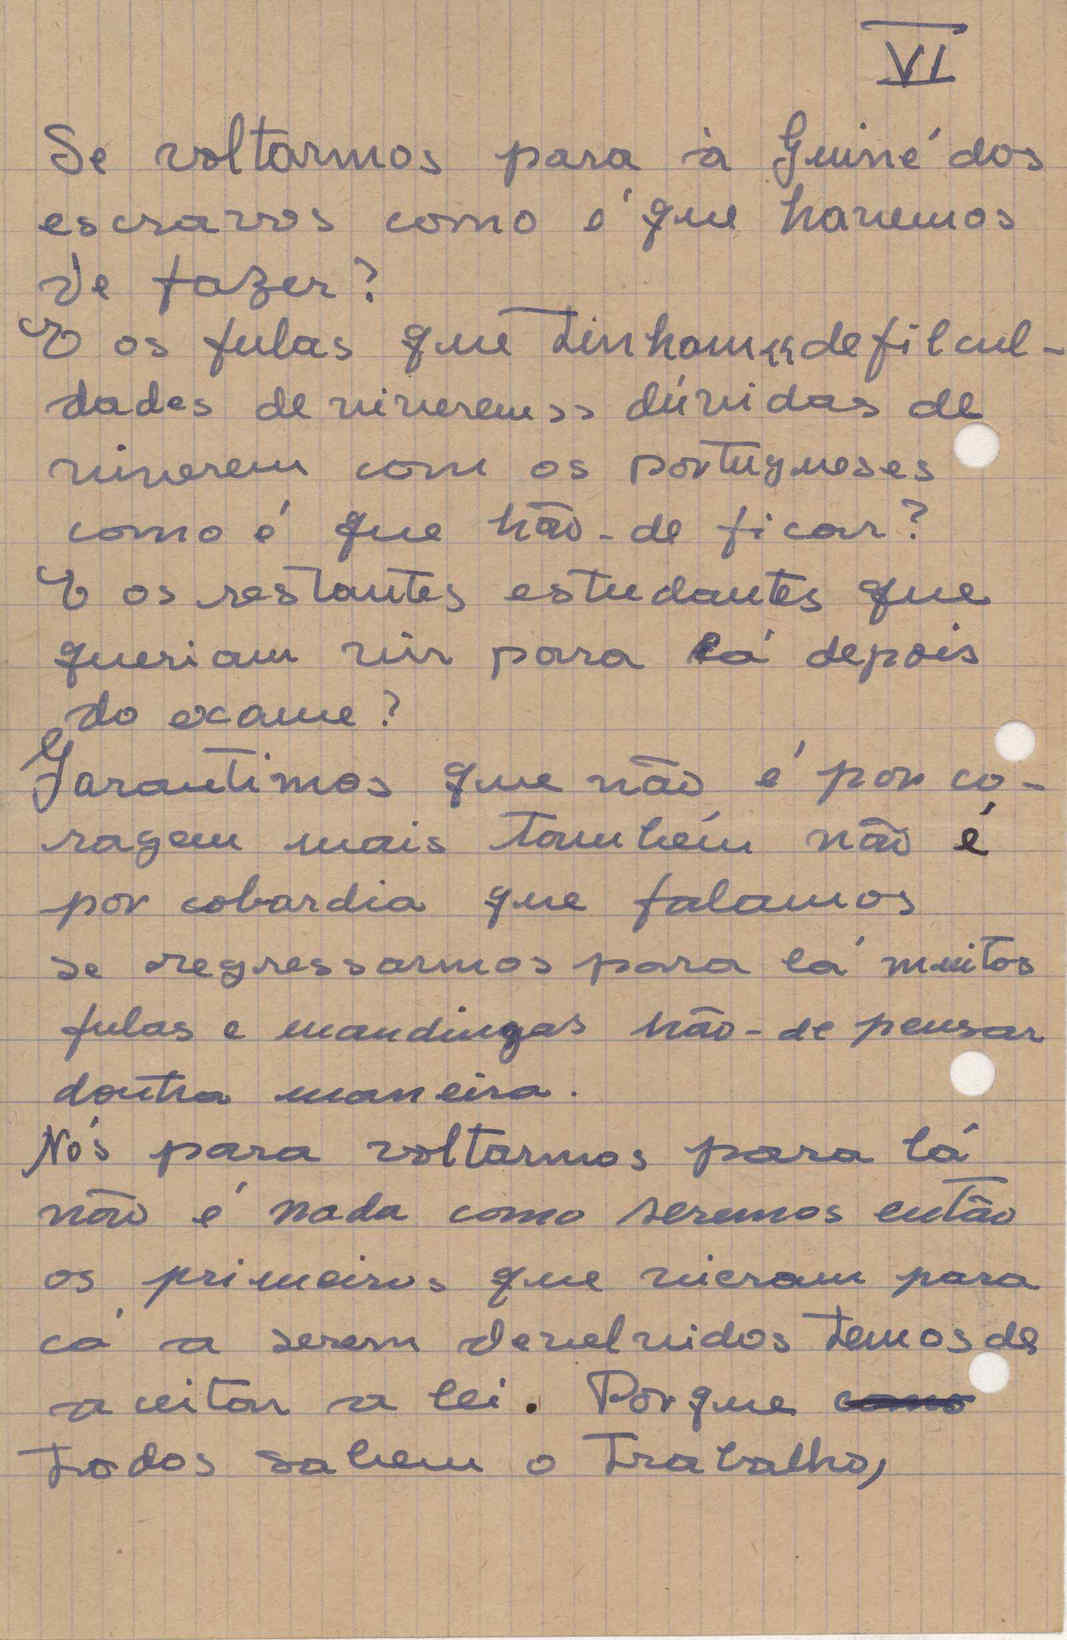 VI
Se voltarmos para à Guiné dos
escravos como é que havemos
de fazer?
E os fulas que tinham «defilcul-
dades de viverem» dúvidas de
viverem com os portugueses
como é que hão-de ficar?
E os restantes estudantes que
queriam vir para cá depois
do exame?
Garantimos que não é por co-
ragem mais também não é
por cobardia que falamos
se regressarmos para lá muitos
fulas e mandingas hão-de pensar
doutra maneira.
Nós para voltarmos para lá
não é nada como seremos então
os primeiros que vieram para
cá a serem develvidos temos de
aceitar a lei. Porque como
todos sabem o trabalho,